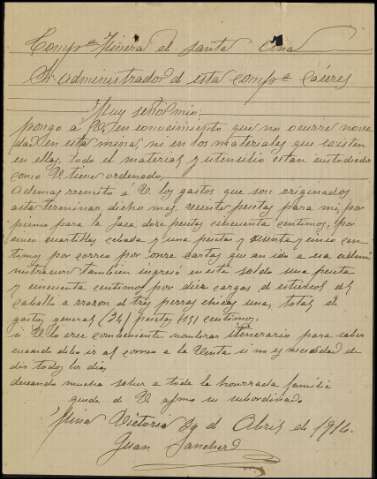 Compª Minera de Santa Ana
Sr administrador de esta Compª Cáceres
Muy señor mio
pongo a V. en conocimiento que no ocurre nove
dad en esta mina, ni en los materiales que esisten
en ellas, todo el material y utensilio estan custodiado
como V tiene ordenado,
ademas remito a V los gastos que son originados
asta terminar dicho mes, pesetas para mi
para la Jaca, doce pesetas cincuenta centimos, por
once cuartillas cebada y una peseta y cincuenta y cinco cen
timos por correo por once cartas que an ido a esa admi
nistracion tambien ingreso en este saldo una peseta
y cincuenta centimos por diez cargas de estiercol del
caballo a razon de tres perras chicas una, total el
gastos general (24) pesetas (51) centimos.
si V lo cree conbeniente itinerario para saber
cuando debo ir al correo a la Venta si no es necesidad de
dir todos los dias
deseando mucha salud a toda la honrrada familia
queda de V afmo su subordinado
Mina Victoria 29 de Abril de 1916.
Juan Sanchez